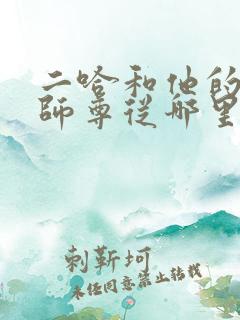 二哈和他的
師尊從哪里
刺靳坷
未经同意禁止转载